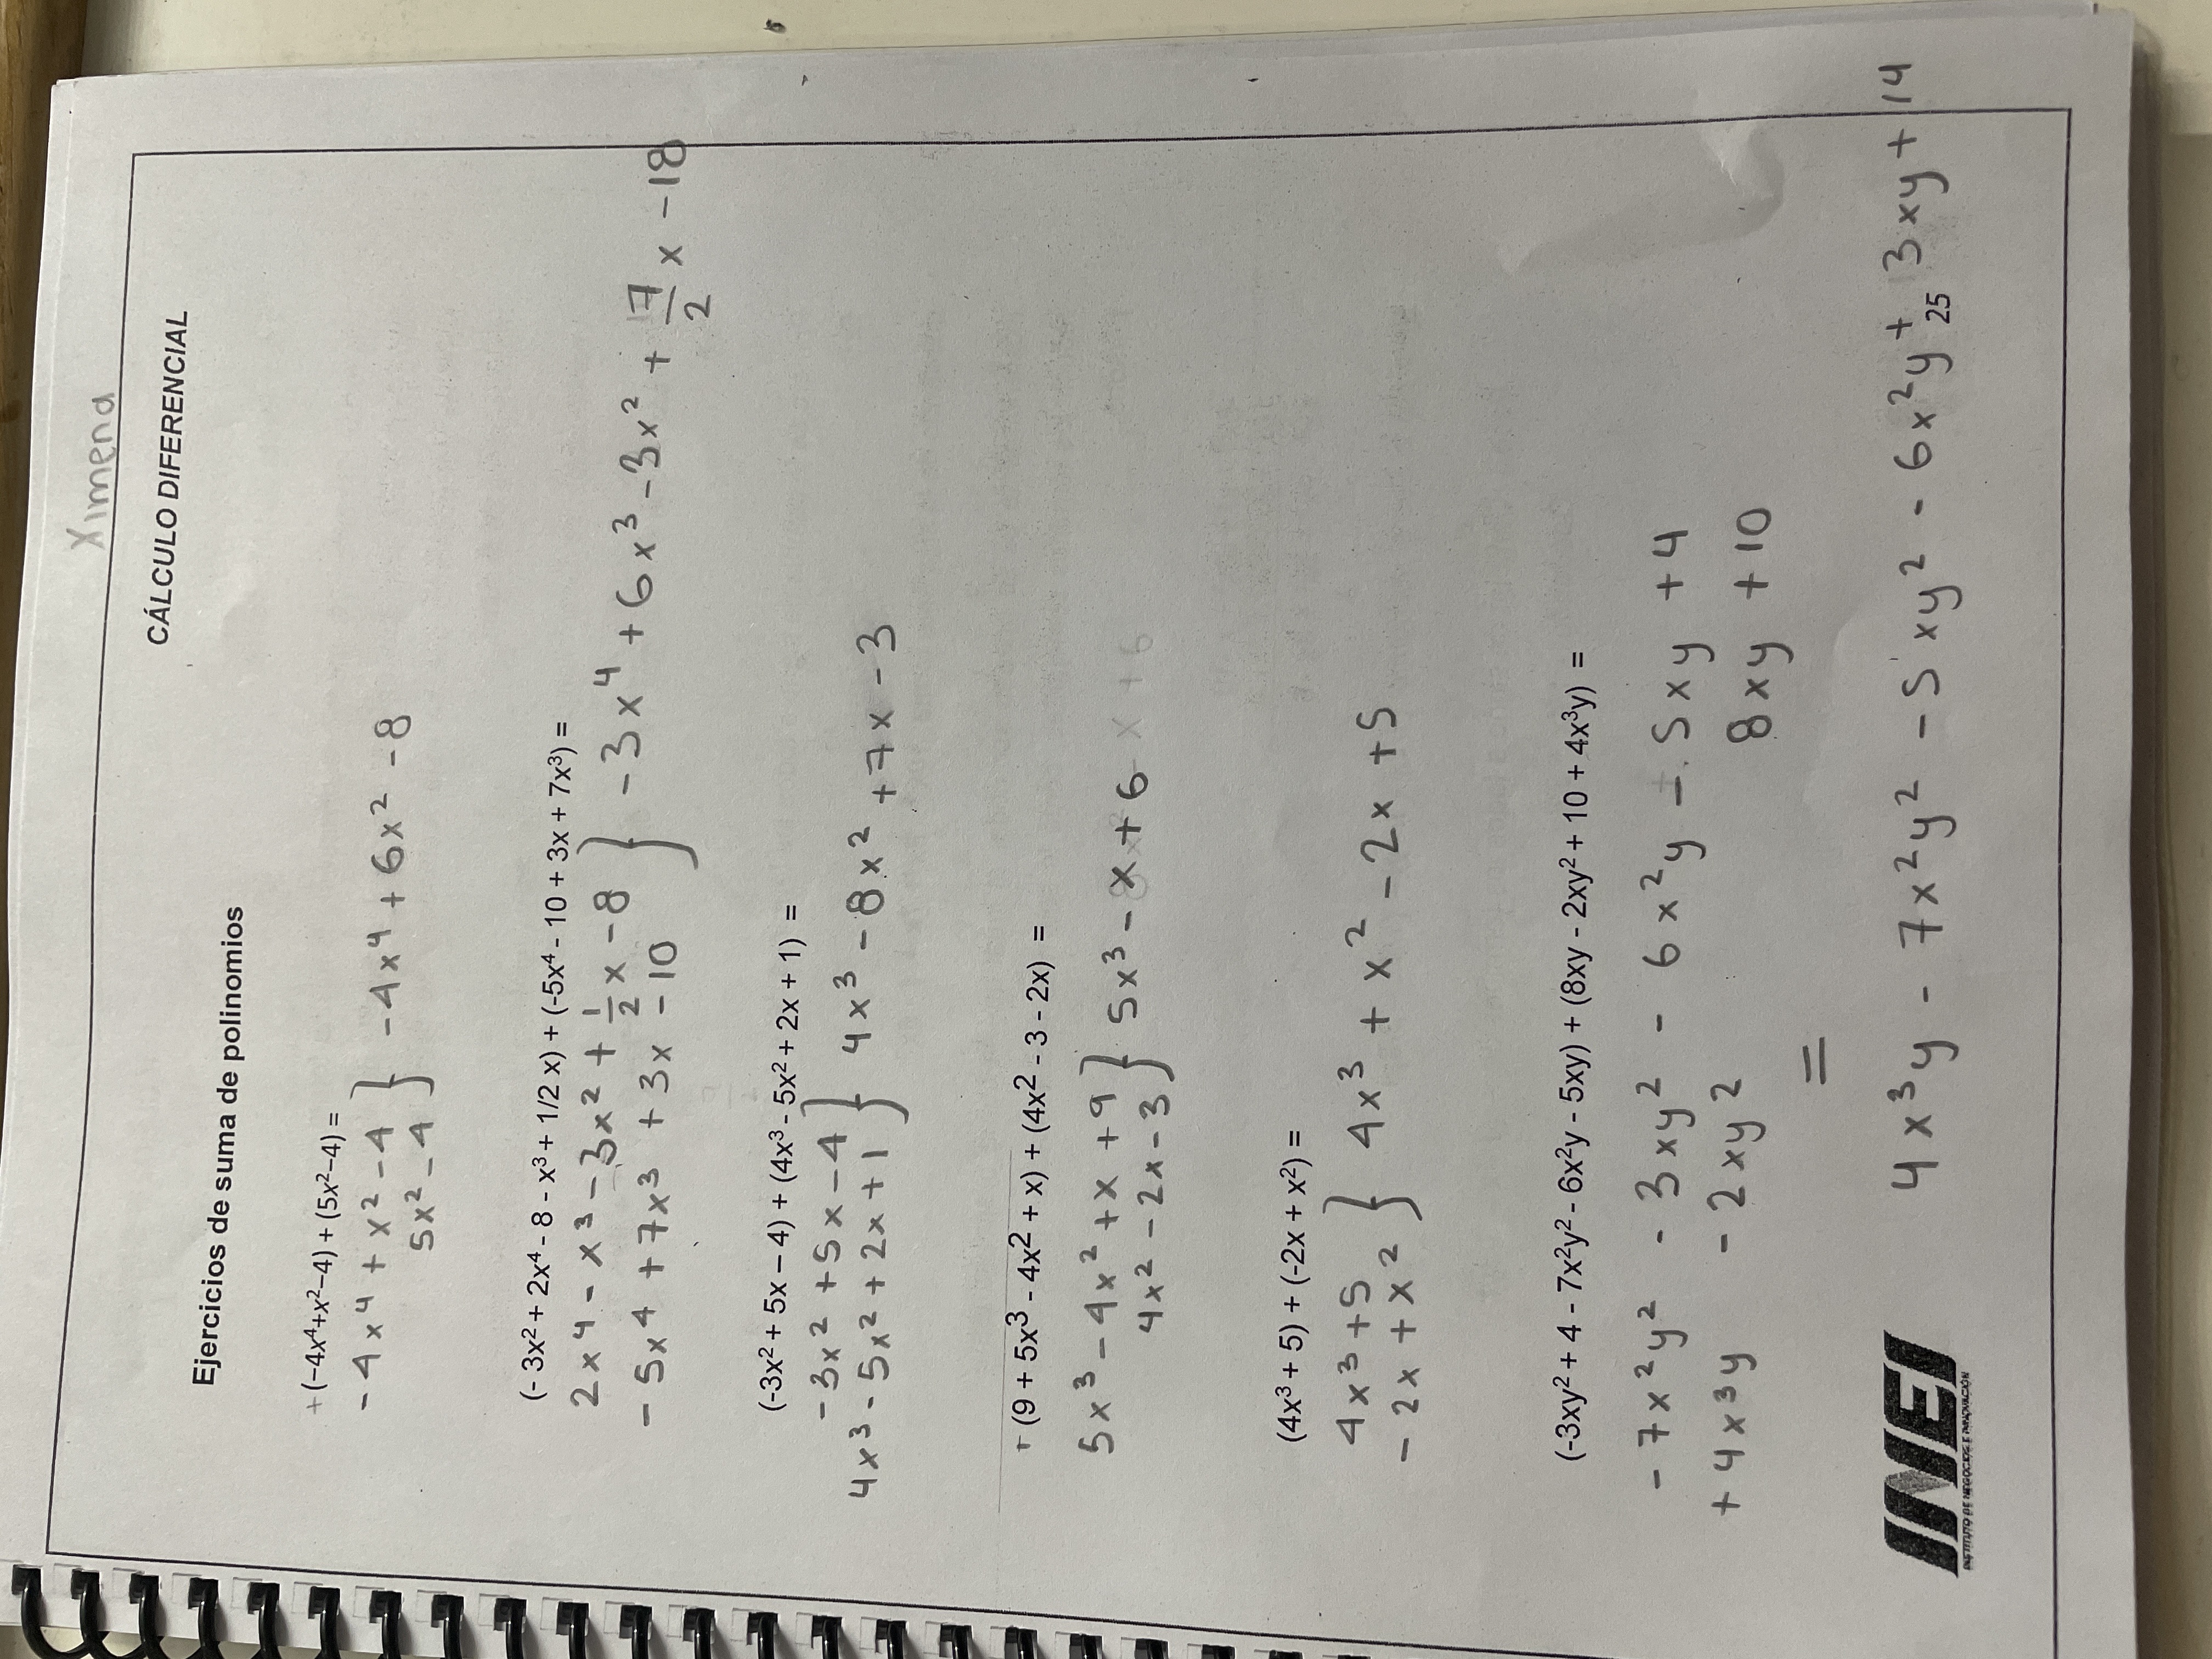 Ximena
CÁLCULO DIFERENCIAL
Ejercicios de suma de polinomios
+ (–4x⁴+x²–4) + (5x²–4) =
-4x⁴ + x² -4 } -4x⁴ + 6x² -8
5x² -4
(- 3x² + 2x⁴ - 8 - x³ + 1/2 x) + (-5x⁴ - 10 + 3x + 7x³) =
2x⁴ - x³ -3x² + 1/2 x -8 } -3x⁴ +6x³ -3x² + 7/2 x -18
-5x⁴ + 7x³ + 3x -10
(-3x² + 5x – 4) + (4x³ - 5x² + 2x + 1) =
-3x² +5x -4 } 4x³ -8x² +7x -3
4x³ -5x² +2x +1
(9 + 5x³ - 4x² + x) + (4x² - 3 - 2x) =
5x³ -4x² +x +9 } 5x³ -x +6
4x² -2x -3
(4x³ + 5) + (-2x + x²) =
4x³ +5 } 4x³ + x² -2x +5
-2x + x²
(-3xy² + 4 - 7x²y² - 6x²y - 5xy) + (8xy - 2xy² + 10 + 4x³y) =
-7x²y² -3xy² -6x²y -5xy +4
+4x³y -2xy² 8xy +10
=
4x³y - 7x²y² -5xy² -6x²y + 3xy + 14
INEI
INSTITUTO DE NEGOCIOS E INNOVACIÓN
25